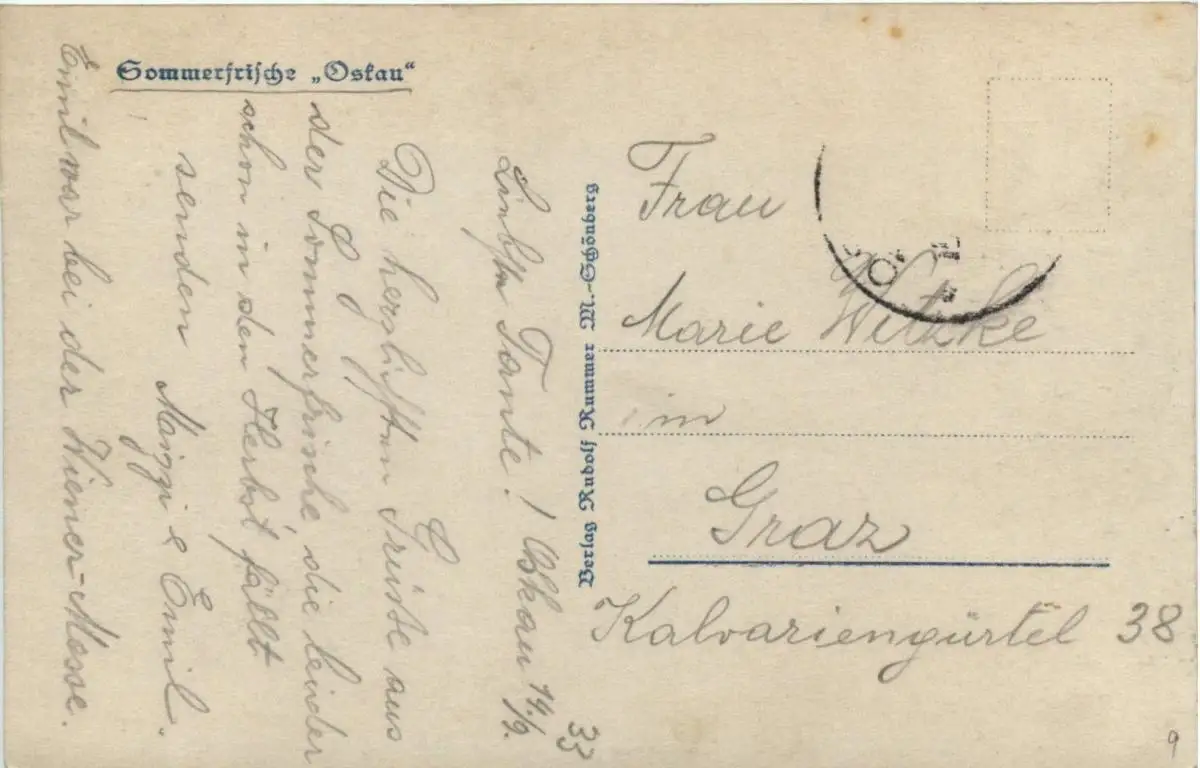 Sommerfrische „Oskau“
Liebste Tante! Oskau 14./9.
33
Die herzlichsten Grüße aus
der Sommerfrische, die leider
schon in den Herbst fällt
senden Maizzi & Emil.
Emil war bei der Wiener-Messe.
Verlag Rudolf Rummer M.-Schönberg
Frau
Marie Witzke
in
Graz
Kalvariengürtel 38
9